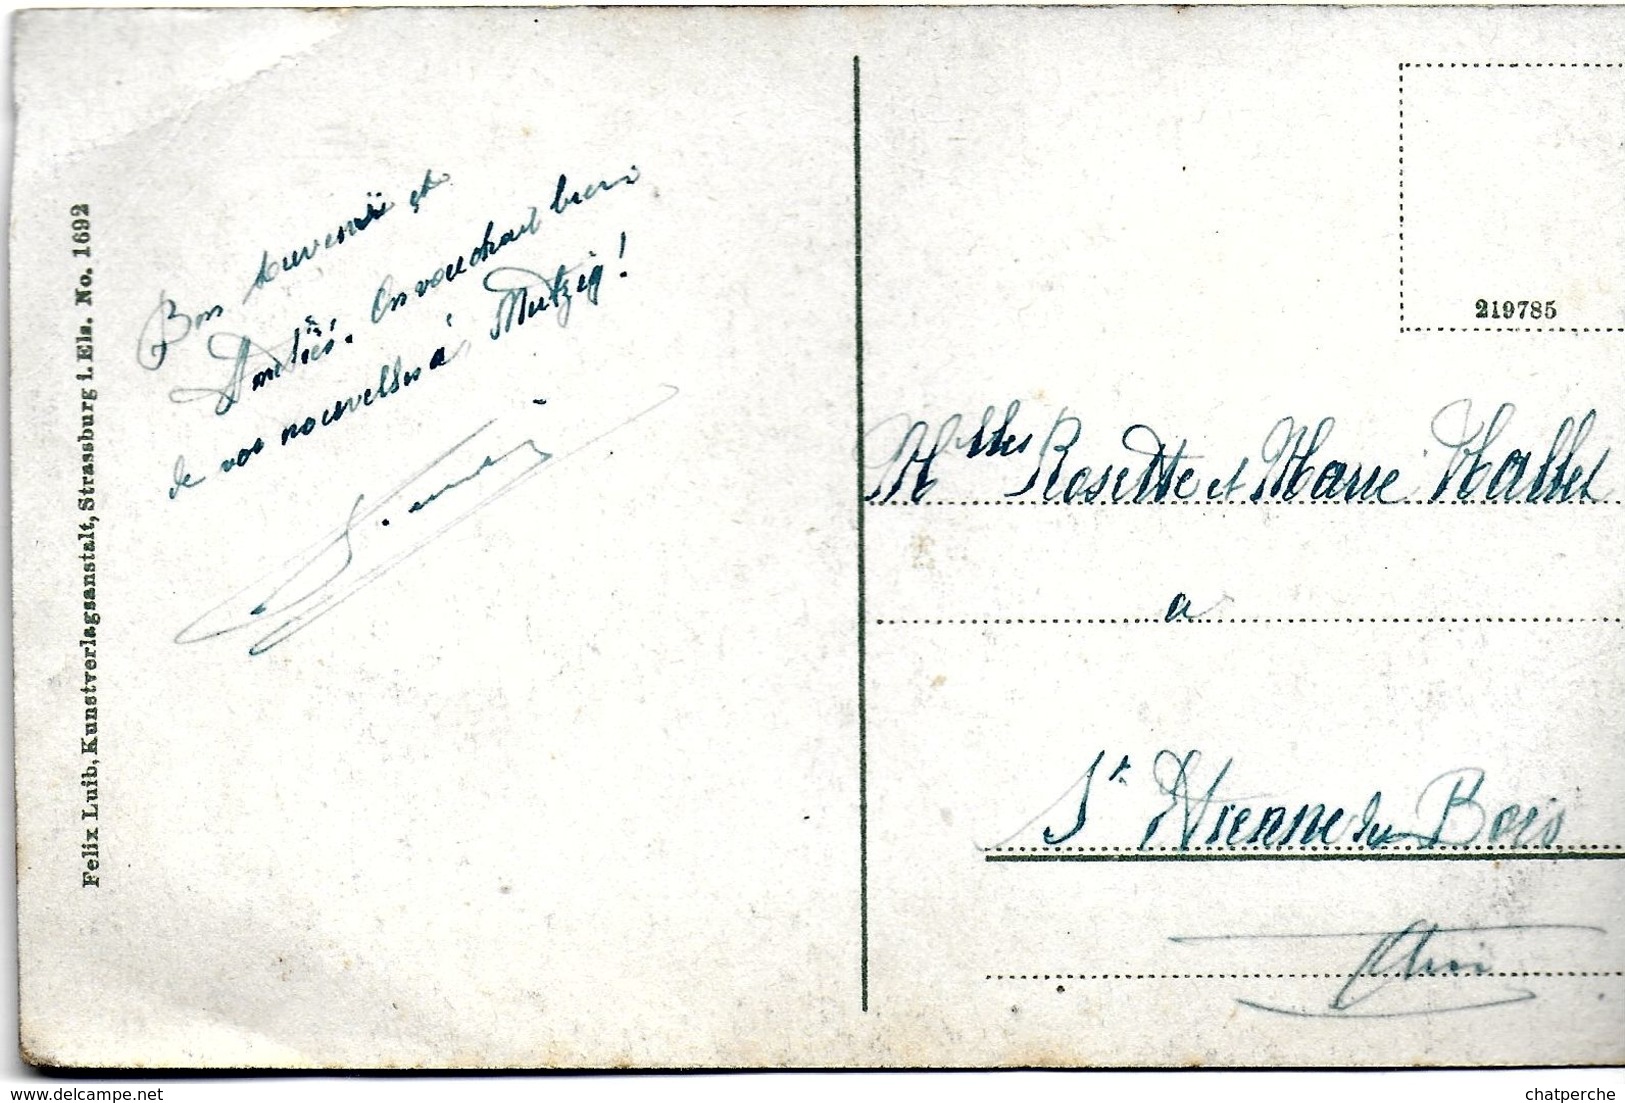 Felix Luib, Kunstverlagsanstalt, Strassburg i. Els. No. 1692
Bon souvenir et
Amitiés. On voudrait bien
de vos nouvelles à Mutzig!
219785
Melles Rosette et Marie Hallet
a
St Etienne du Bois
Ain
chatperche